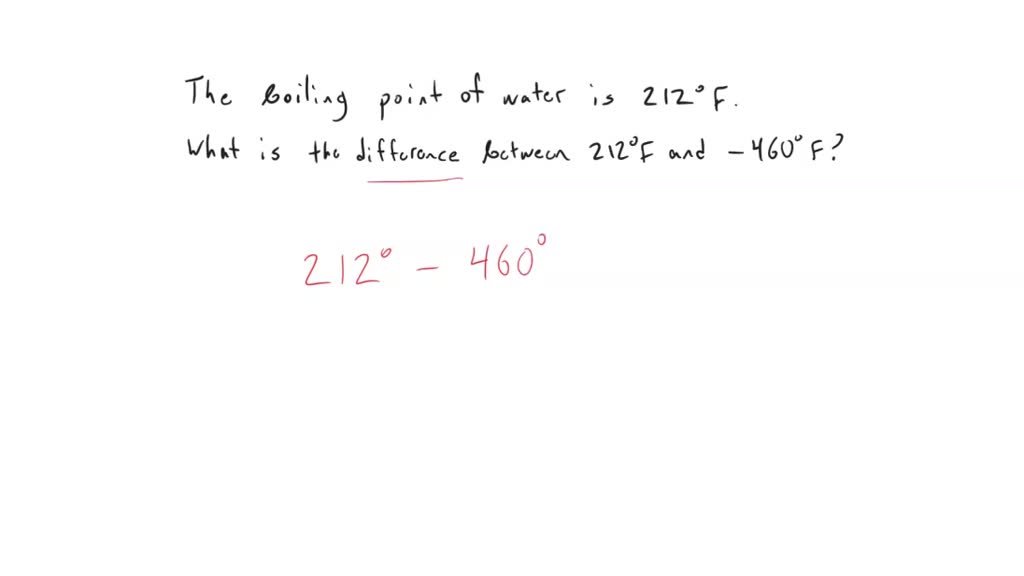 The boiling point of water is 212°F.
What is the difference between 212°F and -460°F?
212° - 460°